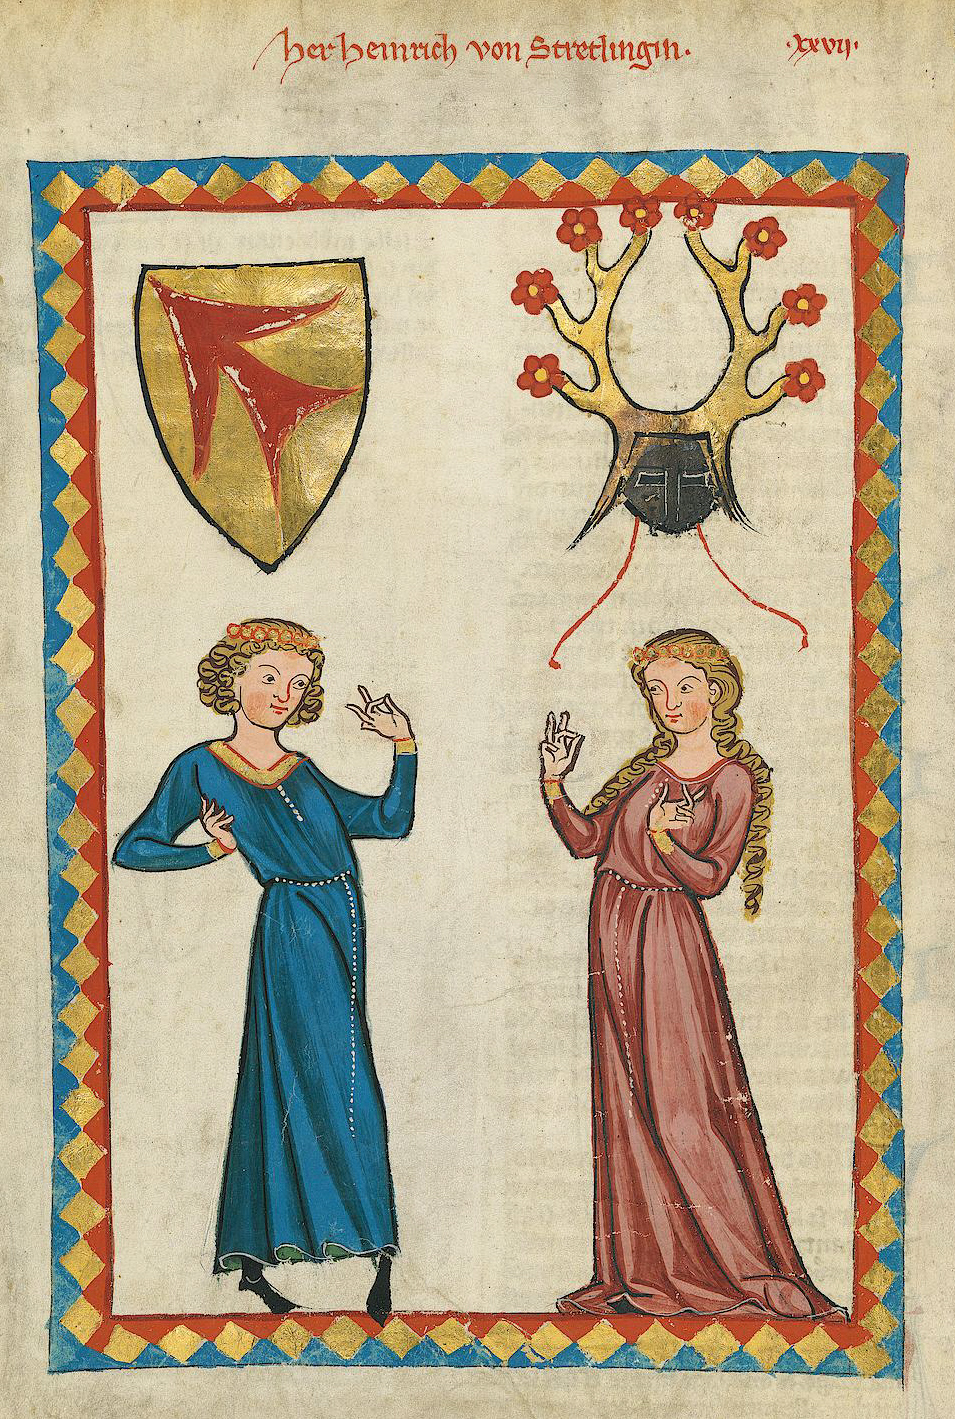 her heinrich von Stretlingin.
·xxvij·